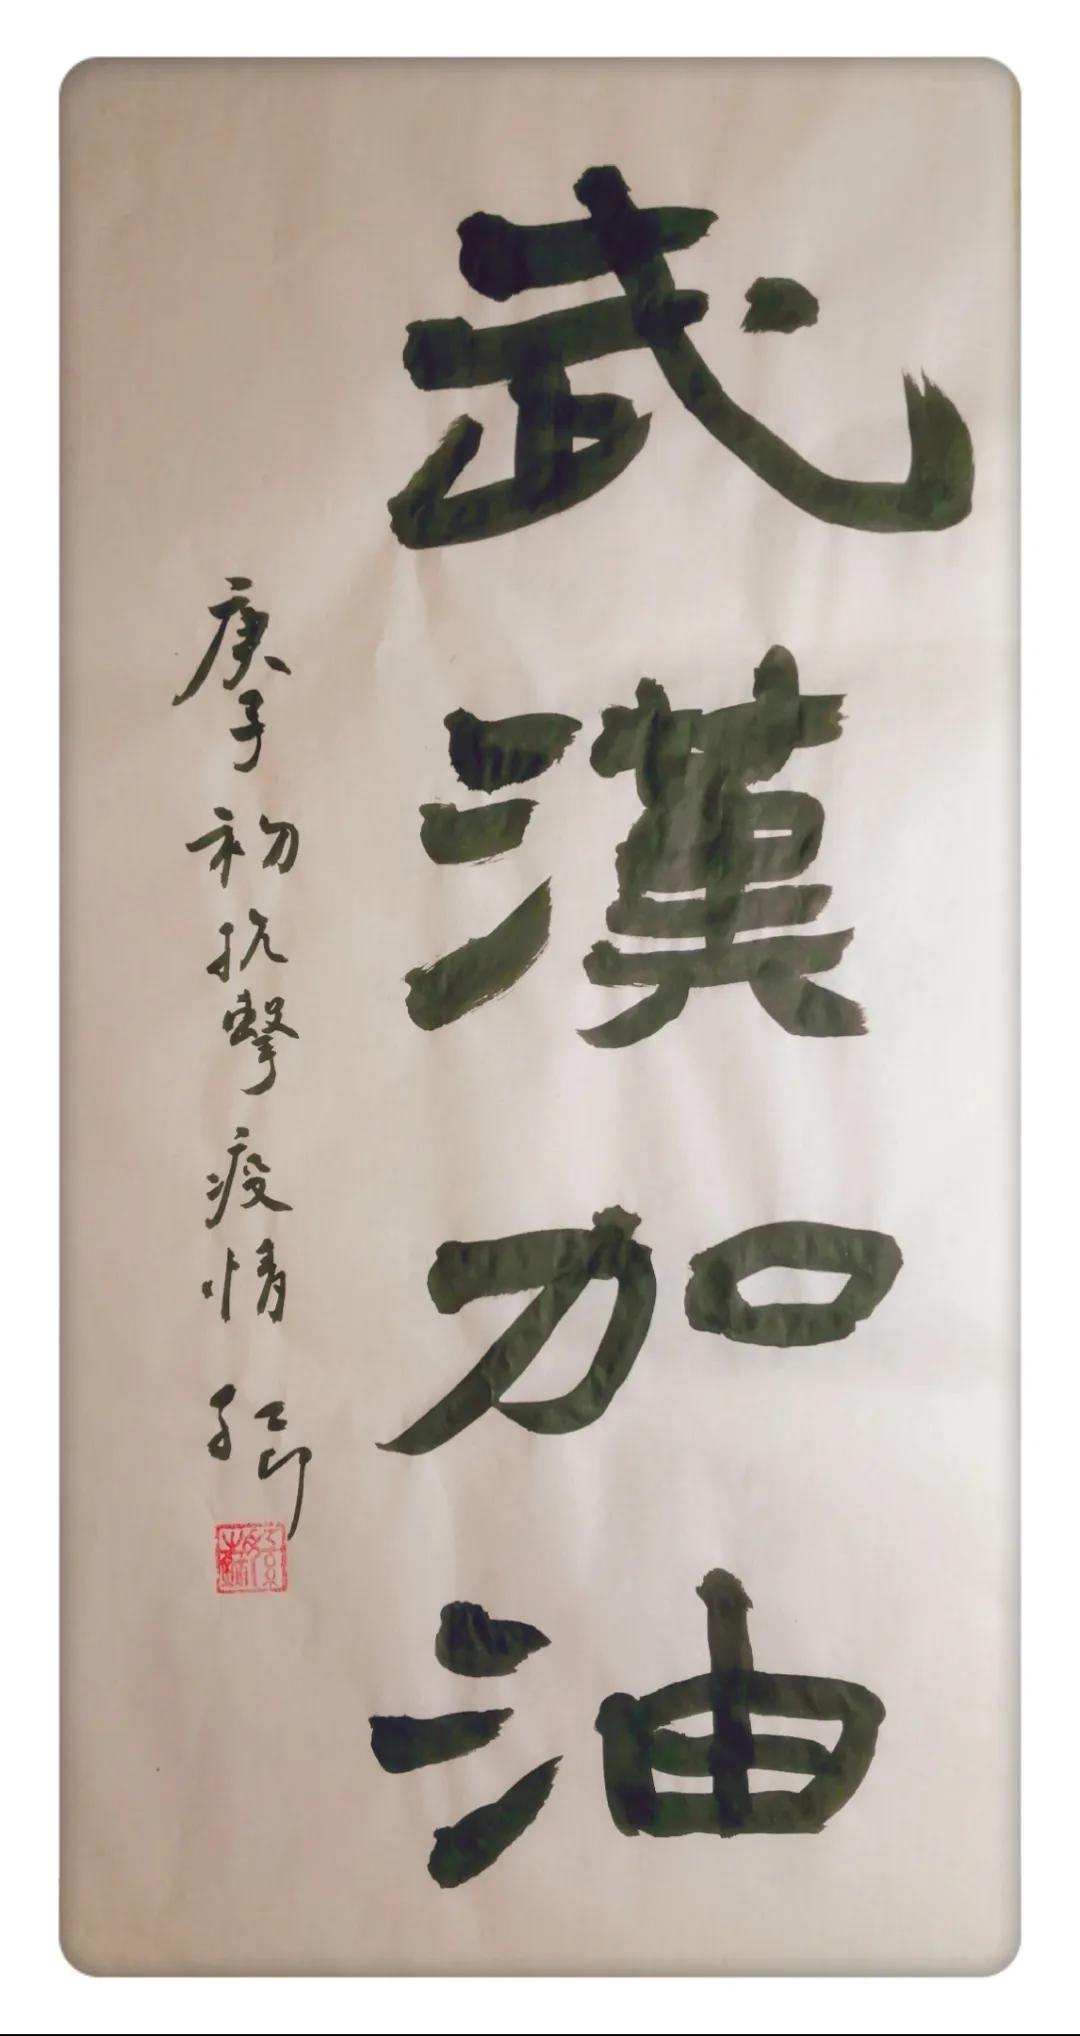 武漢加油
庚子初抗擊疫情